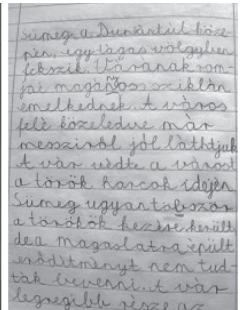 Sümeg a Dunántúl köze-
pén, egy tágas völgyben
fekszik. Várának rom-
jai magányos sziklán
emelkednek. A város
felé közeledve már
messziről jól láthatjuk
A vár védte a várost
a török harcok idején
Sümeg ugyan többször
a törökök kezére került
de a magaslatra épült
erődítményt nem tud-
ták bevenni. A vár
legrégibb része az